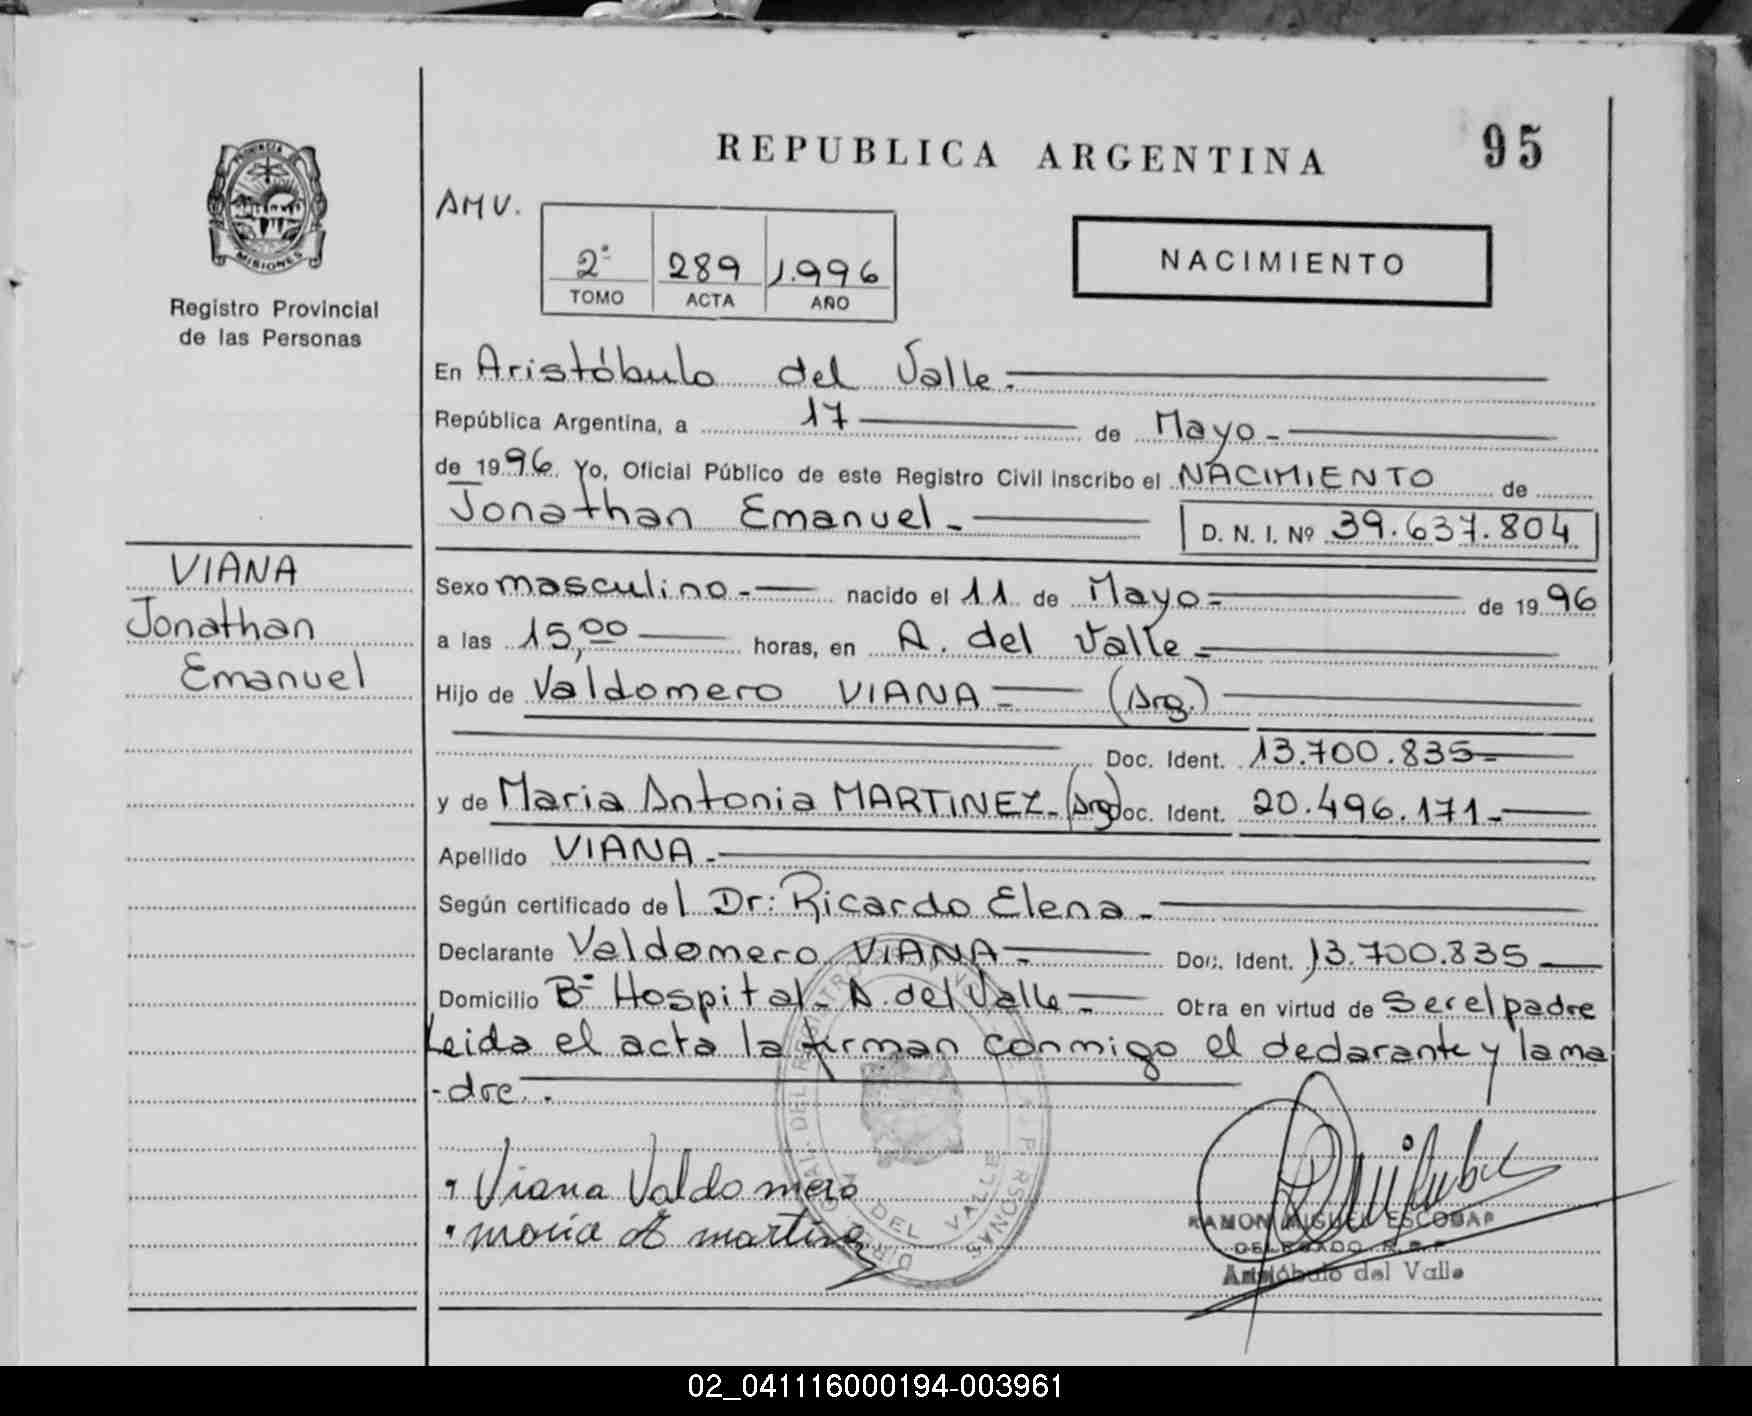 REPUBLICA ARGENTINA
95
PROVINCIA DE
MISIONES
Registro Provincial
de las Personas
AMV.
2º 289 1.996
TOMO ACTA AÑO
NACIMIENTO
En Aristóbulo del Valle.
República Argentina, a 17 de Mayo-
de 1996. Yo, Oficial Público de este Registro Civil inscribo el NACIMIENTO de
Jonathan Emanuel-
D. N. I. Nº 39.637.804
VIANA
Jonathan
Emanuel
Sexo masculino.- nacido el 11 de Mayo- de 1996
a las 15,00 horas, en A. del Valle-
Hijo de Valdomero VIANA- (Arg.)
Doc. Ident. 13.700.835-
y de Maria Antonia MARTINEZ-(Arg) Doc. Ident. 20.496.171-
Apellido VIANA.-
Según certificado del Dr: Ricardo Elena-
Declarante Valdomero VIANA- Doc. Ident. 13.700.835
Domicilio Bº Hospital- A. del Valle- Otra en virtud de Ser el padre
Leida el acta la firman conmigo el declarante y la ma
-dre.
Viana Valdomero
maria A martinez
RAMON MIGUEL ESCOBAR
DELEGADO R.P.P.
Aristóbulo del Valle
02_041116000194-003961